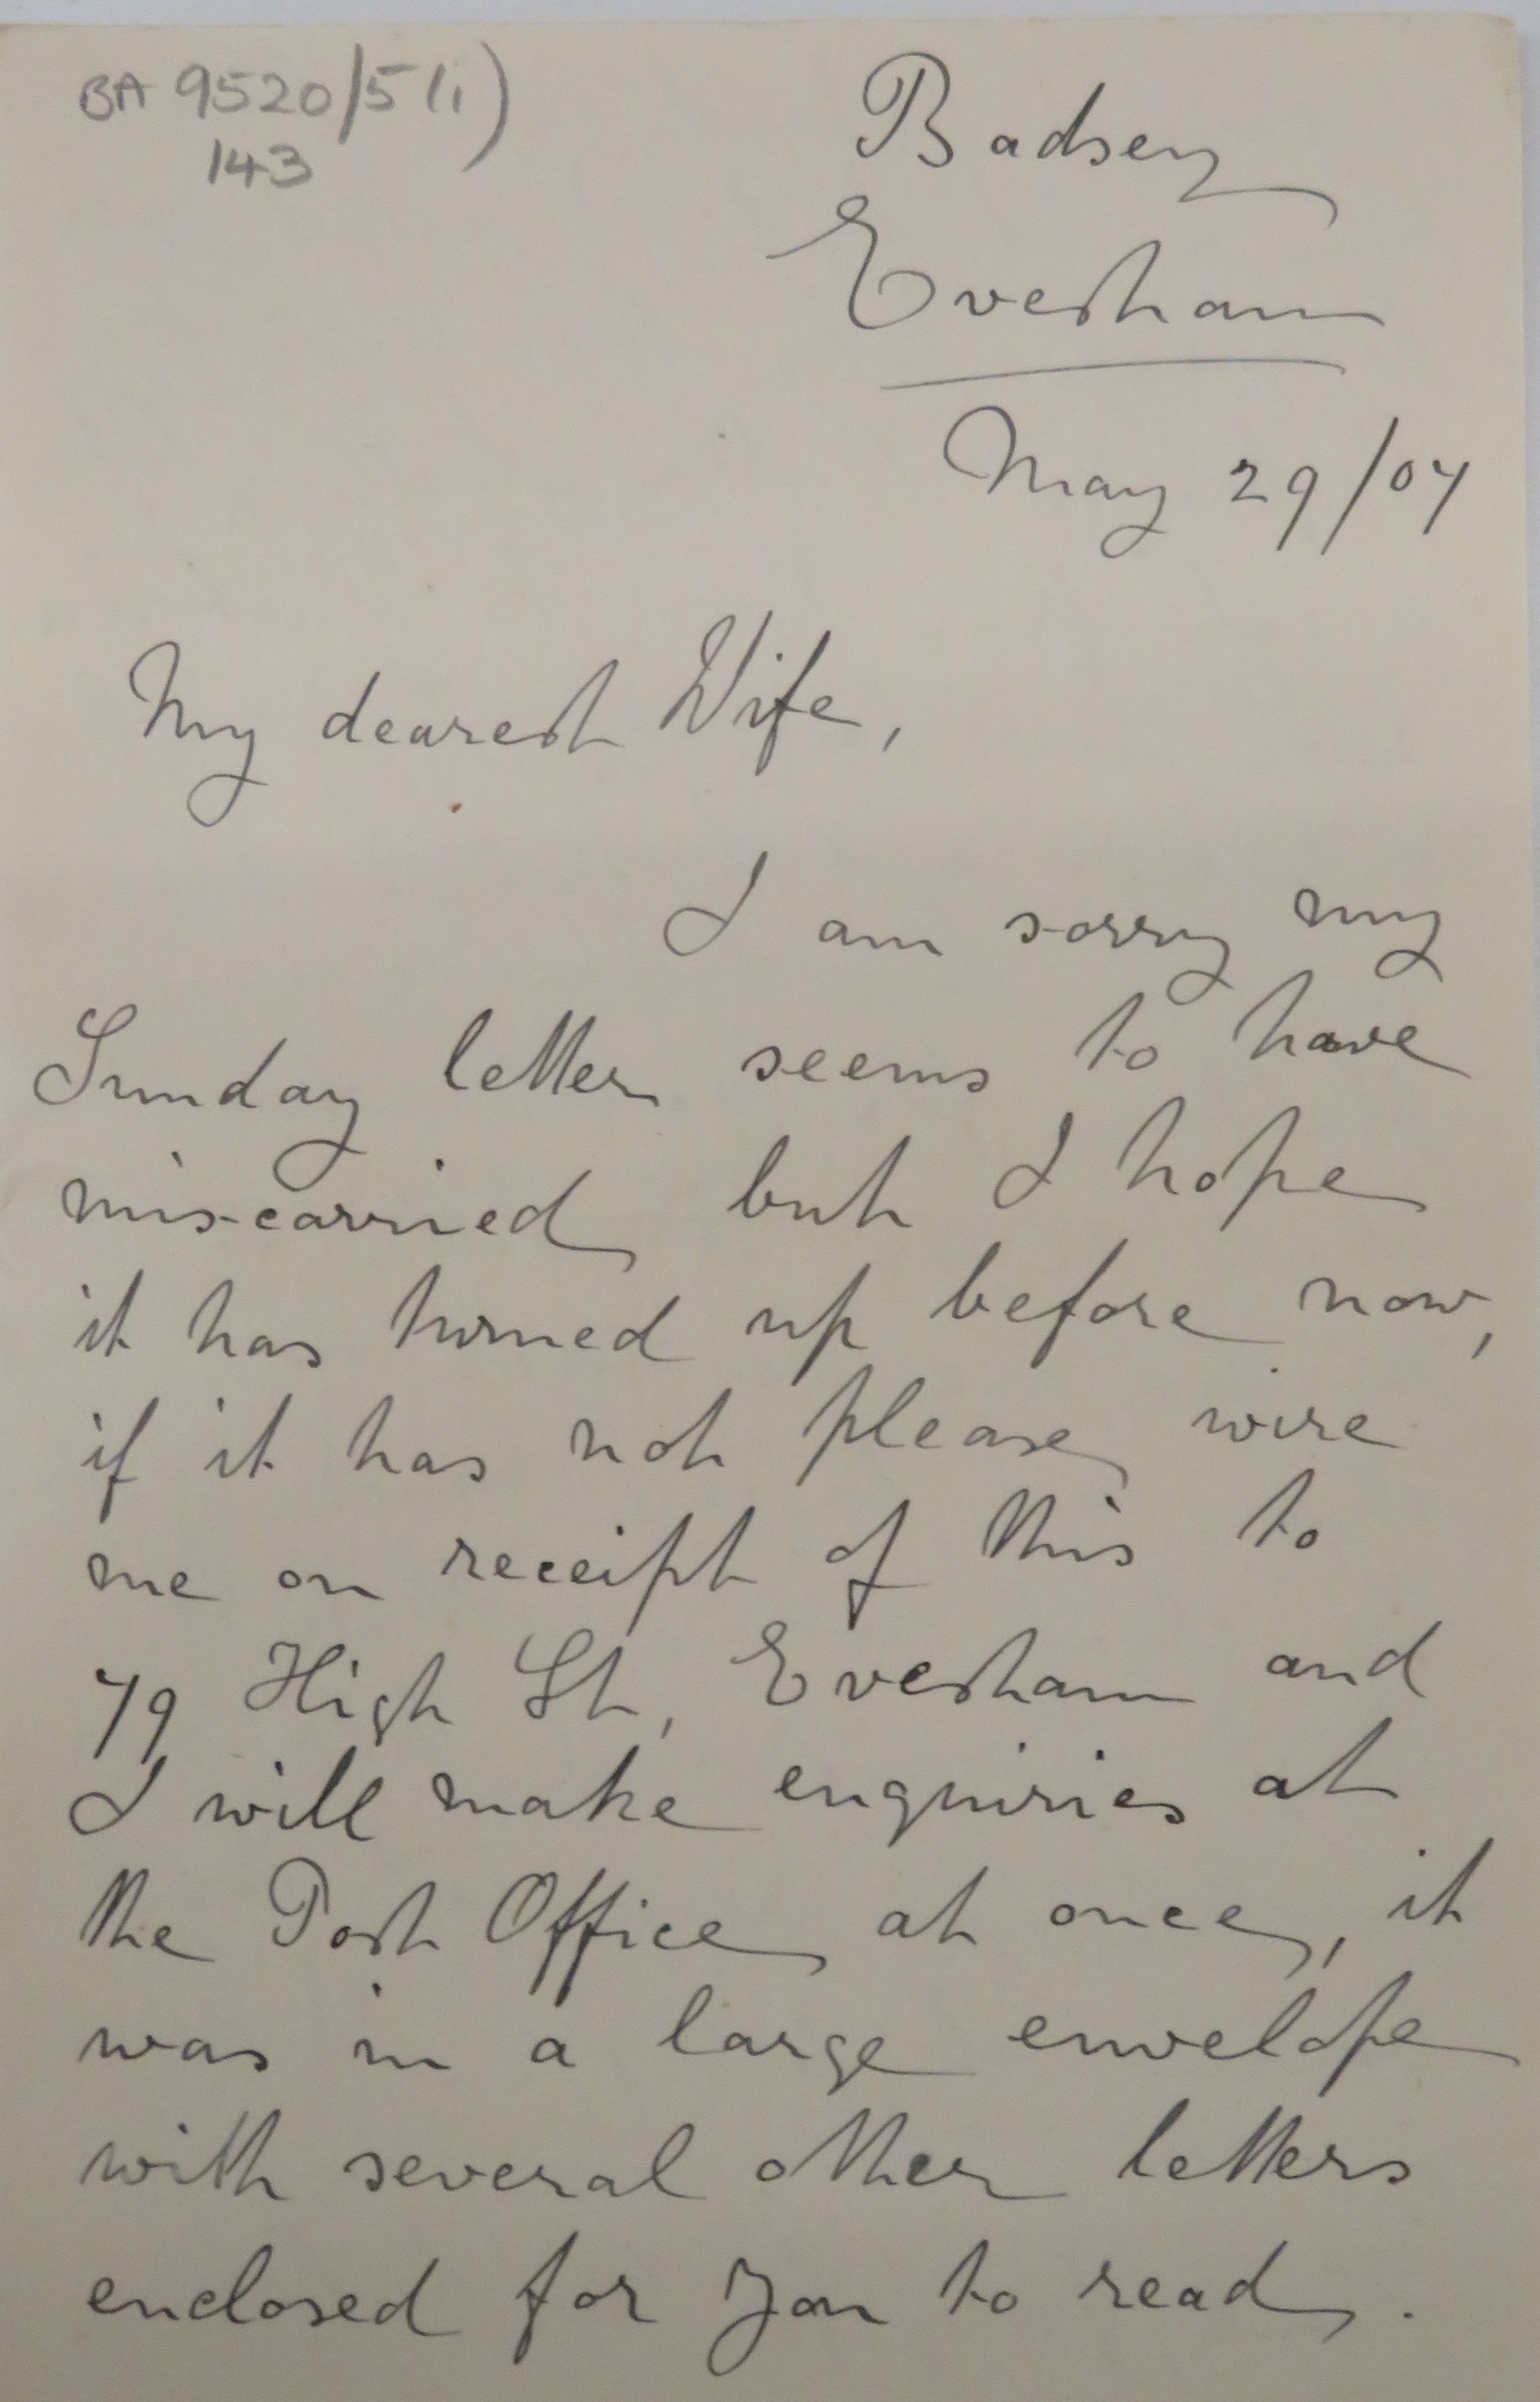 BA 9520/5(i)
143
Badsey
Evesham
May 29/07
My dearest Wife,
I am sorry my
Sunday letter seems to have
mis-carried but I hope
it has turned up before now,
if it has not please wire
me on receipt of this to
79 High St, Evesham and
I will make enquiries at
the Post Office at once, it
was in a large envelope
with several other letters
enclosed for you to read.